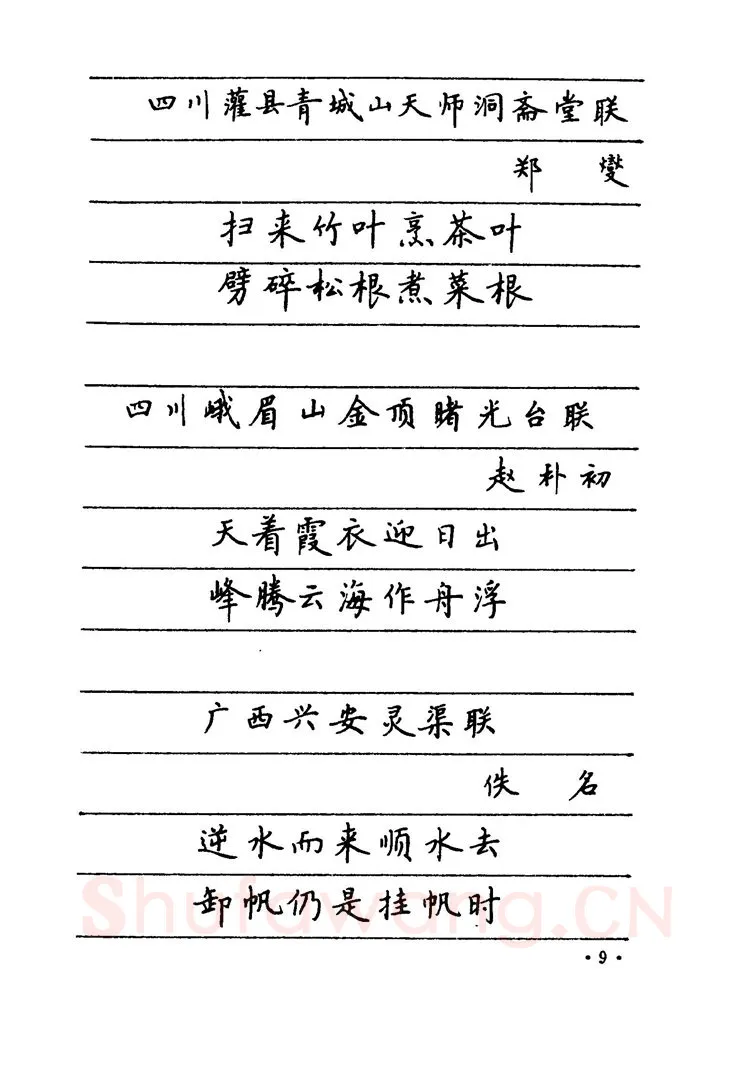 四川灌县青城山天师洞斋堂联
郑燮
扫来竹叶烹茶叶
劈碎松根煮菜根
四川峨眉山金顶睹光台联
赵朴初
天着霞衣迎日出
峰腾云海作舟浮
广西兴安灵渠联
佚名
逆水而来顺水去
卸帆仍是挂帆时
Shufawang.CN
·9·